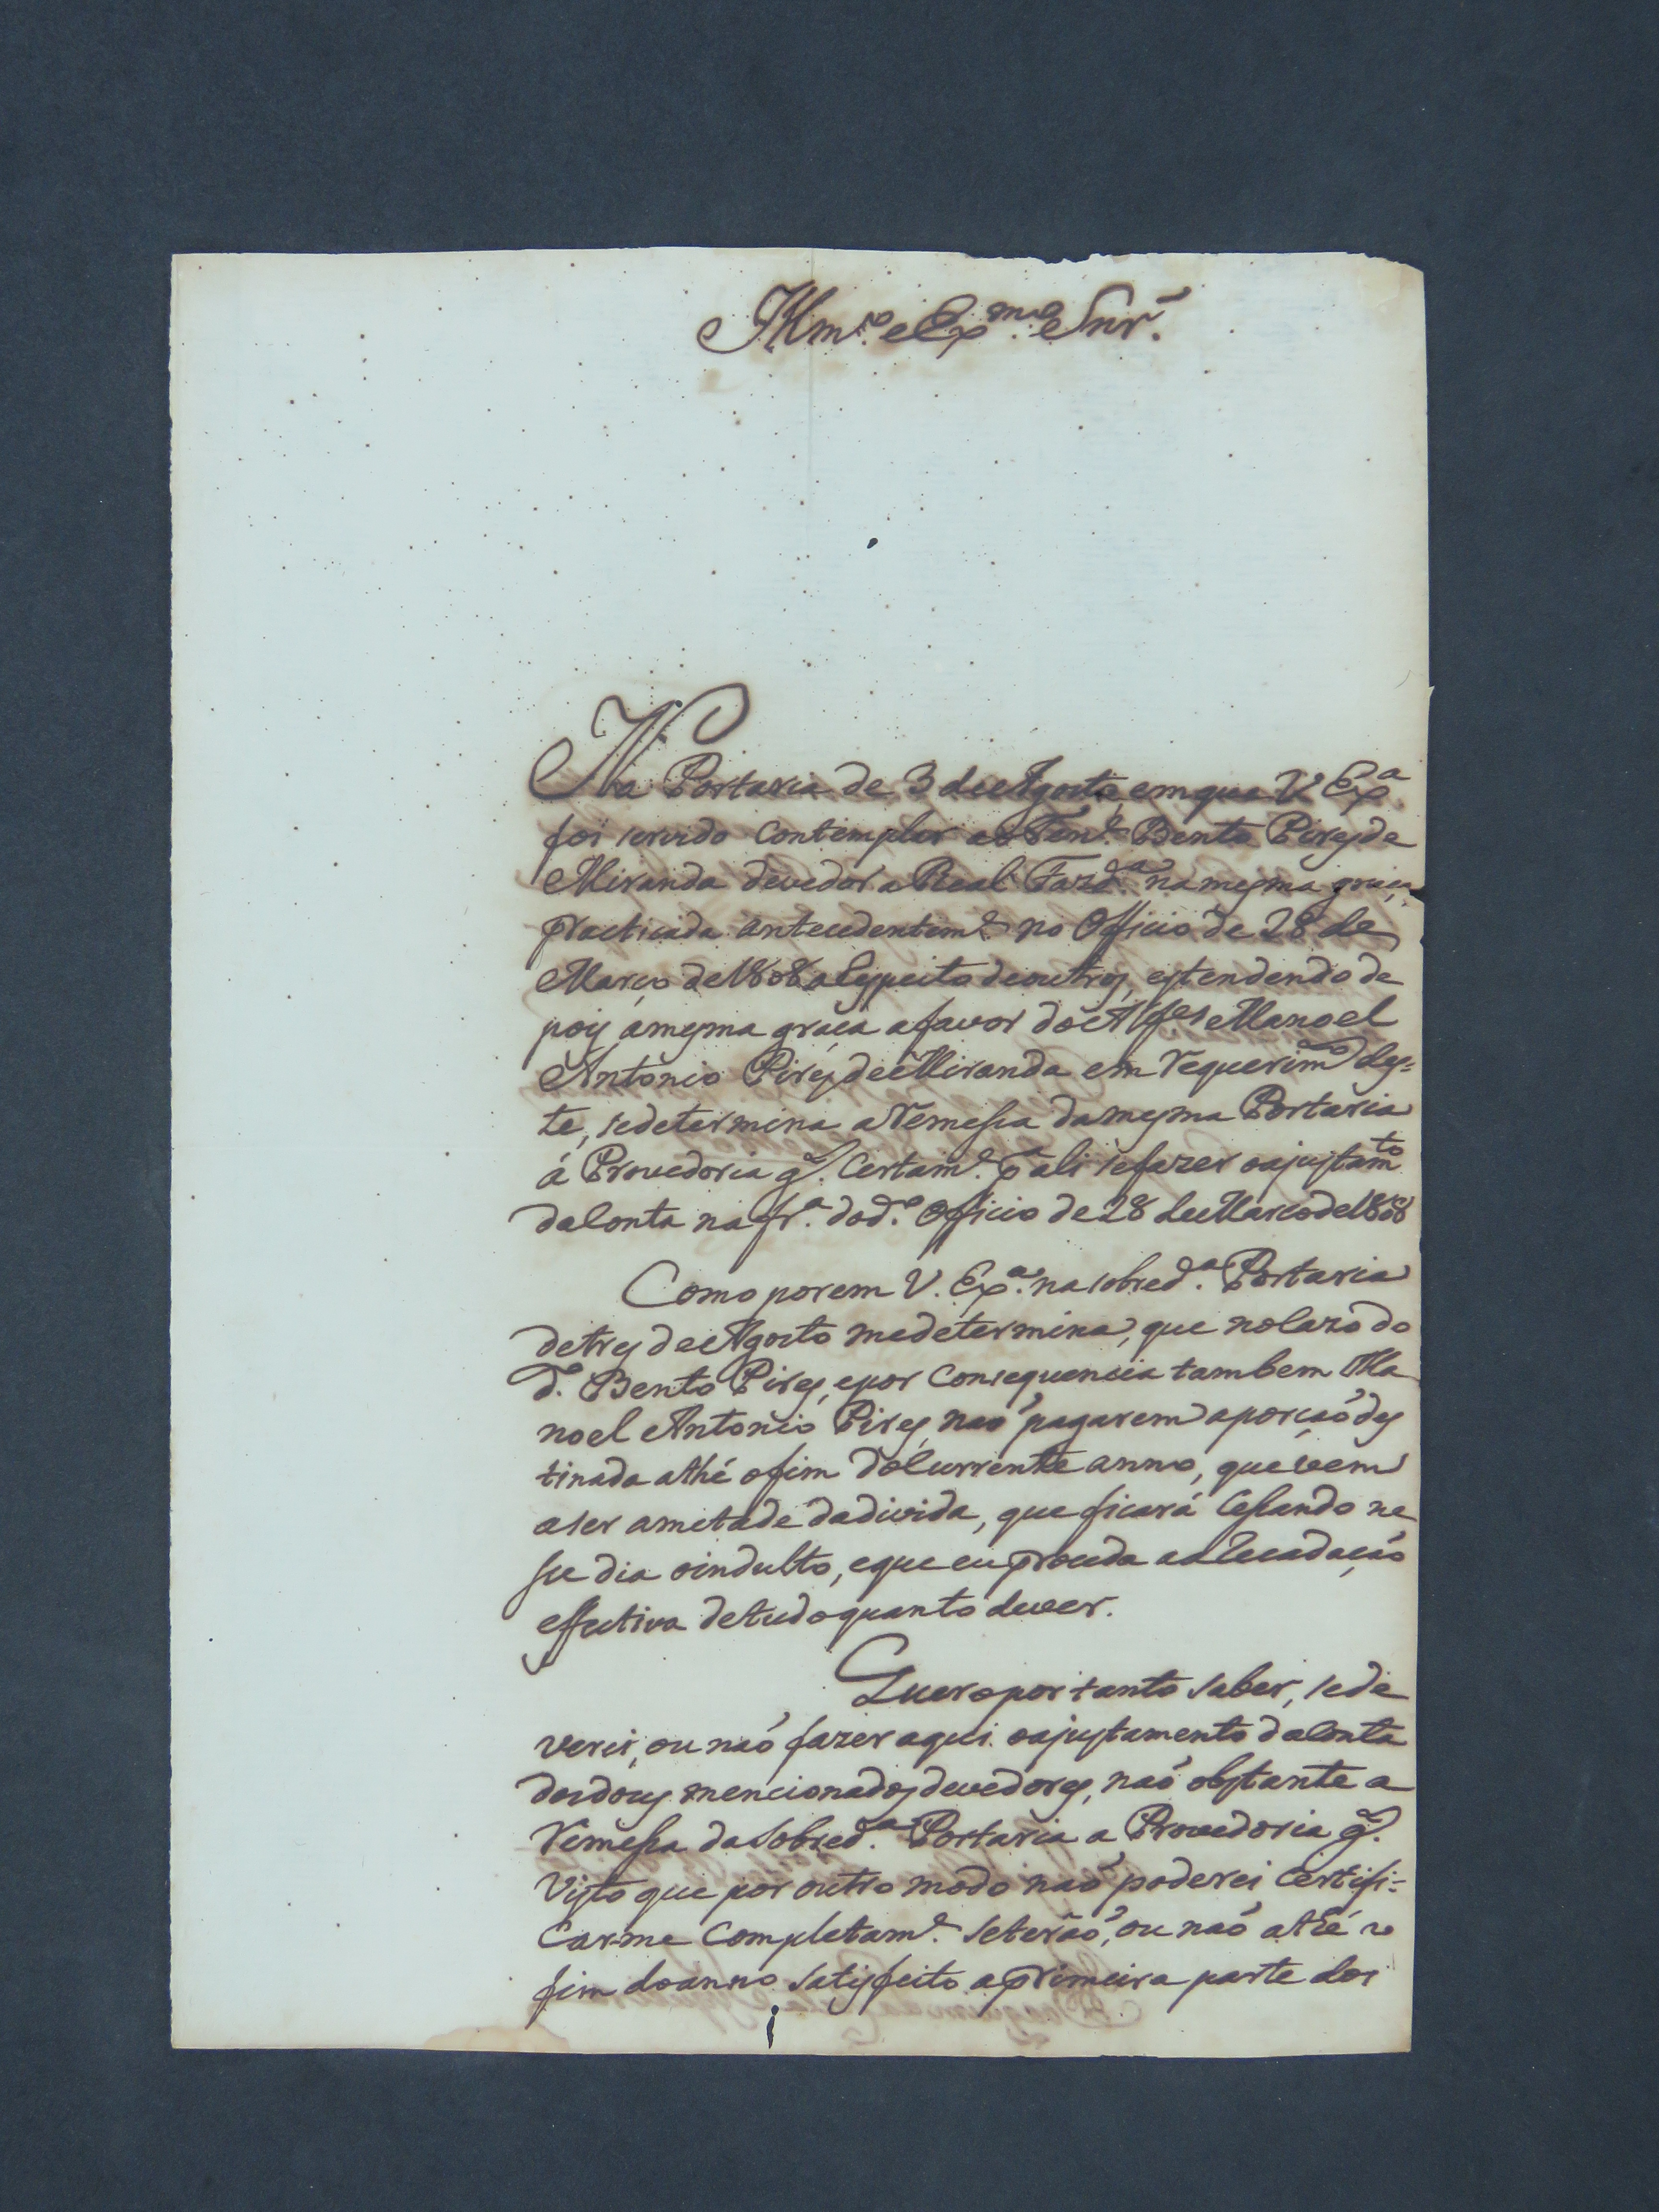 Illmo. e Exmo. Snr.
Na Portaria de 3 de Agosto, em que V. Exa.
foi servido contemplar ao Tene. Bento Pires de
Miranda devedor a Real Fazda. na mesma graça,
practicada antecedenteme. no Officio de 28 de
Março de 1808 a Respeito de outros, estendendo de
pois a mesma graça a favor do Alferes Manoel
Antonio Pires de Miranda em requerimto. des=
te, se determina a remessa da mesma Portaria
á Provedoria gl. certame. pa. ali se fazer o ajustamto.
da Conta na fra. do do. Officio de 28 de Março de 1808
Como porem V. Exa. na sobreda. Portaria
de tres de Agosto me determina, que no Cazo do
do. Bento Pires, e por Consequencia tambem Ma
noel Antonio Pires, naõ pagarem a porçaõ des
tinada athé o fim do Currente anno, que vem
a ser ametade da divida, que ficará Cessando ne
sse dia o indulto, e que eu proceda a aRecadaçaõ
effectiva de tudo quanto dever.
Quero por tanto saber, se de
verei, ou naõ fazer aqui o ajustamento da Conta
dos dous mencionados devedores, naõ obstante a
remessa da sobreda. Portaria a Provedoria gl.
Visto que por outro modo naõ poderei Certifi=
carme Completame. se teraõ, ou naõ athé o
fim do anno satisfeito a primeira parte dos